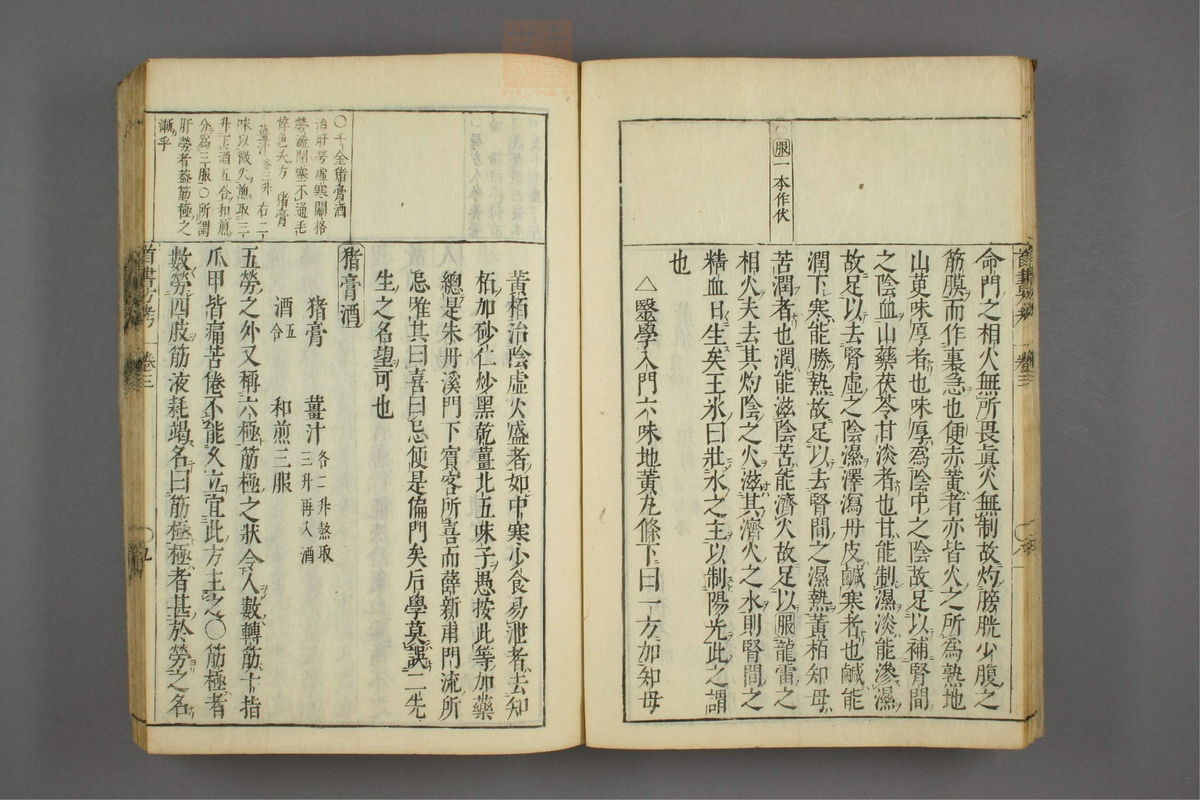 服一本作伏
命門之相火無所畏真火無制故灼膀胱少腹之
筋膜而作裏急也便赤黃者亦皆火之所為熟地
山萸味厚者也味厚為陰中之陰故足以補腎間
之陰血山藥茯苓甘淡者也甘能制濕淡能滲濕
故足以去腎虛之陰濕澤瀉丹皮鹹寒者也鹹能
潤下寒能勝熱故足以去腎間之濕熱黃栢知母
苦潤者也潤能滋陰苦能濟火故足以服龍雷之
相火夫去其灼陰之火滋其濟火之水則腎間之
精血日生矣王氷曰壯水之主以制陽光此之謂
也
△毉學入門六味地黃丸條下曰一方加知母
卷三
〇千金猪膏酒
治肝勞虛寒關格
勞澁閉塞不通毛
悴色夭方 猪膏
薑汁各三升 右二
味以微火煎取三
升下酒五合和煎
分為三服〇所謂
肝勞者蓋筋極之
漸乎
黃栢治陰虛火盛者如中寒少食易泄者去知
栢加砂仁炒黑乾薑北五味子愚按此等加藥
總是朱丹溪門下賓客所喜而薛新甫門流所
忌雖其曰喜曰忌便是偏門矣后學莫誤二先
生之名望可也
猪膏酒
猪膏 薑汁各二升熬取三升再入酒
酒五合 和煎三服
五勞之外又稱六極筋極之狀令人數轉筋十指
爪甲皆痛苦倦不能久立宜此方主之〇筋極者
數勞四肢筋液耗竭名曰筋極極者甚於勞之名
首書方考 卷三 〇九